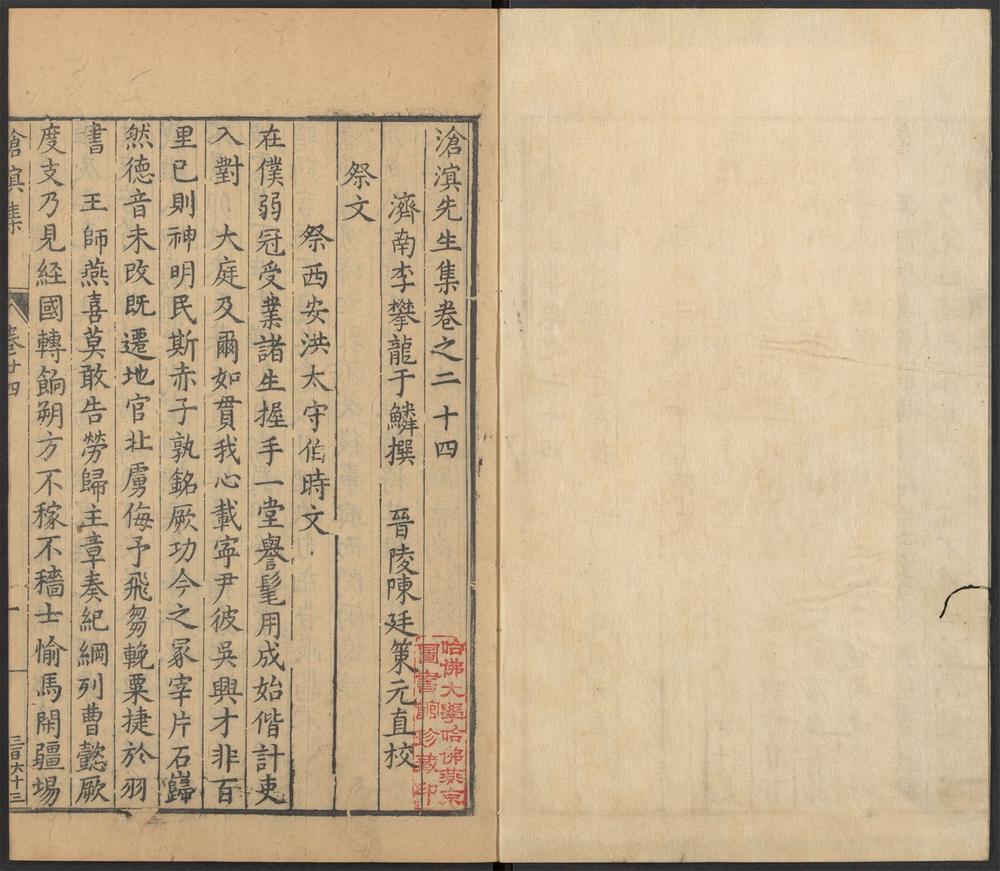 滄溟先生集卷之二十四
濟南李攀龍于鱗撰　晉陵陳廷策元直校
祭文
祭西安洪太守伯時文
在僕弱冠受業諸生握手一堂譽髦用成始偕計吏
入對　大庭及爾如貫我心載寧尹彼吳興才非百
里已則神明民斯赤子孰銘厥功今之冢宰片石巋
然德音未改既遷地官北虜侮予飛芻輓粟捷於羽
書　王師燕喜莫敢告勞歸主章奏紀綱列曹懿厥
度支乃見經國轉餉朔方不稼不穡士愉馬閑疆埸
滄溟集
卷廿四
一
三百六十三
哈佛大學哈佛燕京
圖書館珍藏印